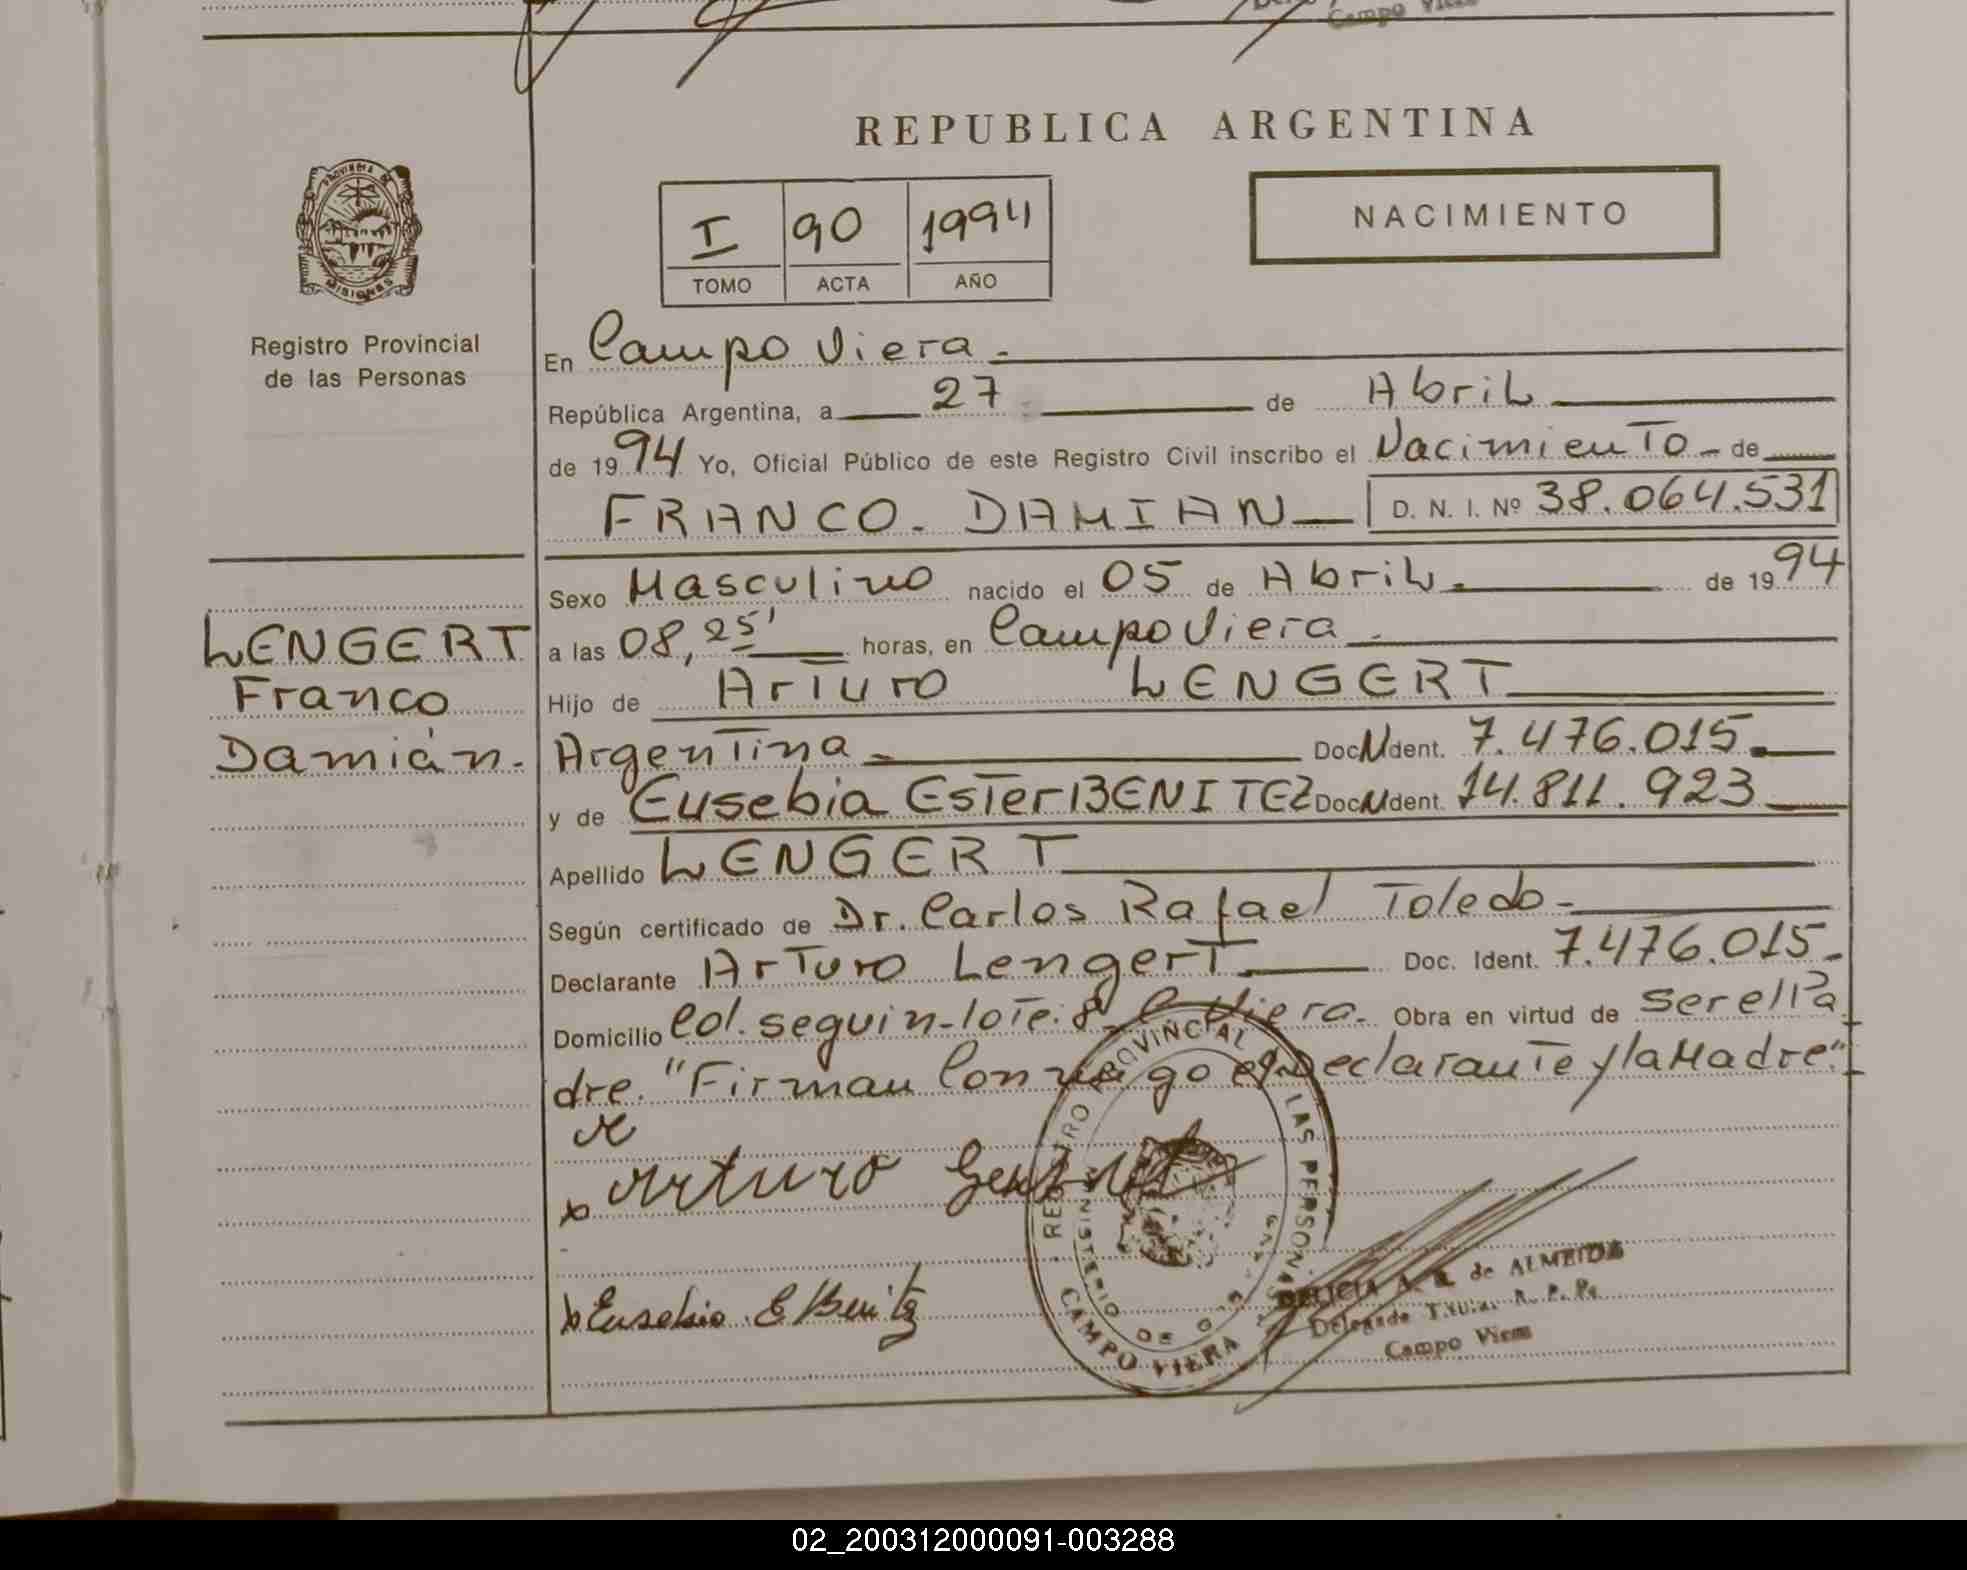 Campo Viera
REPUBLICA ARGENTINA
PROVINCIA DE
MISIONES
Registro Provincial
de las Personas
I 90 1994
TOMO ACTA AÑO
NACIMIENTO
En Campo Viera.-
República Argentina, a 27 de Abril
de 1994 Yo, Oficial Público de este Registro Civil inscribo el Nacimiento - de
FRANCO. DAMIAN D. N. I. Nº 38.064.531
LENGERT
Franco
Damián.
Sexo Masculino nacido el 05 de Abril. de 1994
a las 08,25' horas, en Campo Viera.
Hijo de Arturo LENGERT
Argentina Doc. Ident. 7.476.015.
y de Eusebia Ester BENITEZ Doc. Ident. 14.811.923
Apellido LENGERT
Según certificado de Dr. Carlos Rafael Toledo-
Declarante Arturo Lengert Doc. Ident. 7.476.015-
Domicilio Col. seguin-lote.8 C. Viera. Obra en virtud de ser el Pa
dre. "Firman Conmigo el Declarante y la Madre".
x Arturo
x Eusebia E Benitez
REGISTRO PROVINCIAL DE LAS PERSONAS
MINISTERIO DE
CAMPO VIERA
DELICIA A. de ALMEIDA
Delegada Titular R. P. P.
Campo Viera
02_200312000091-003288